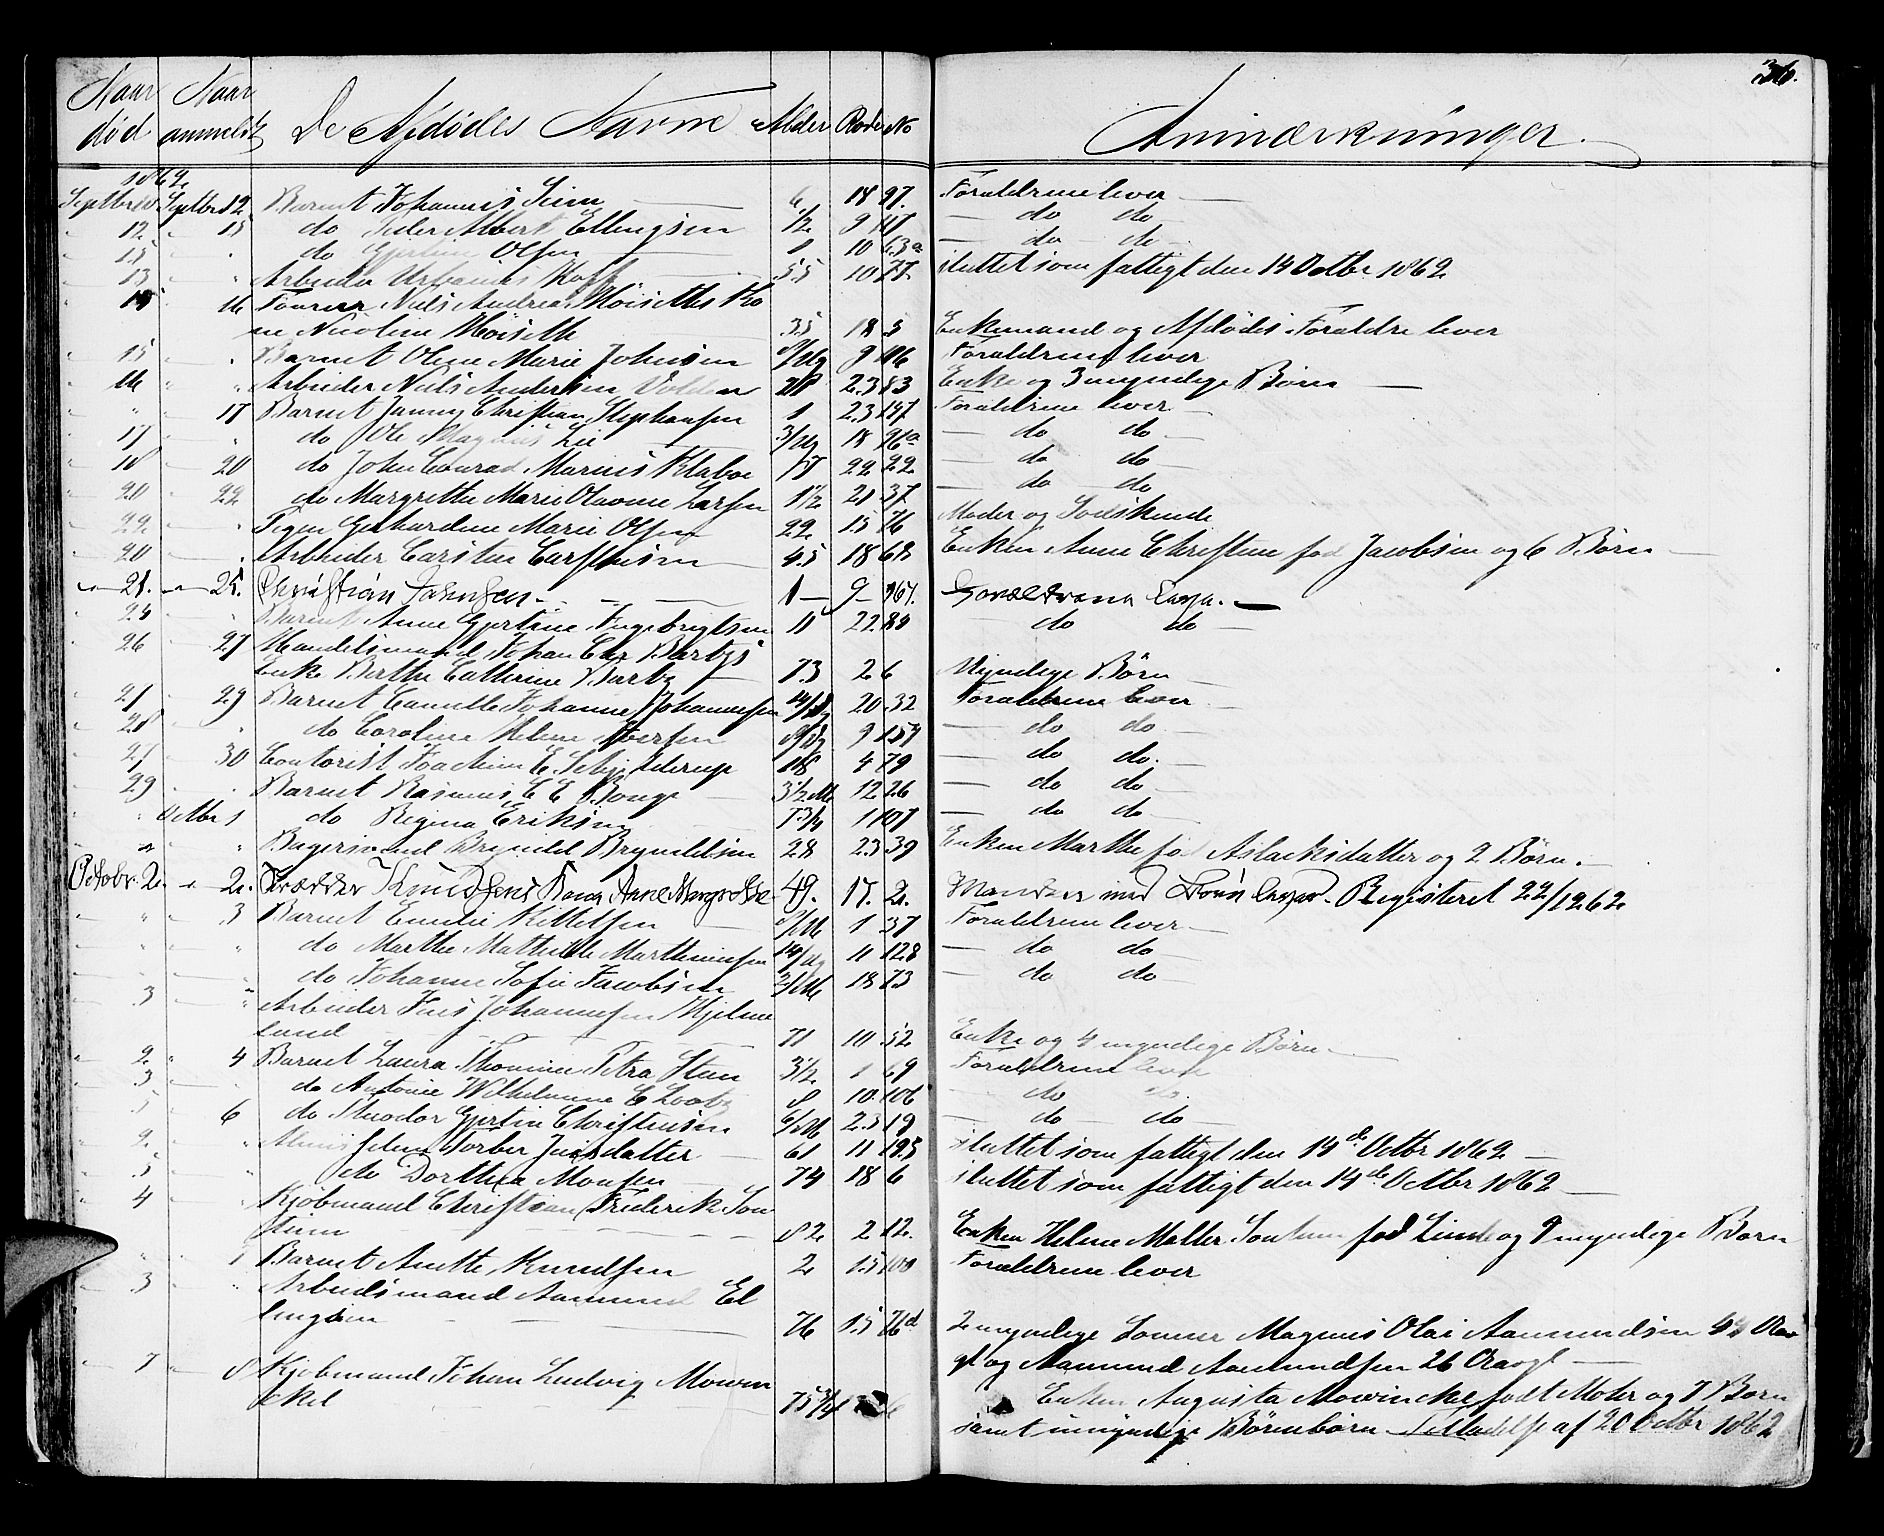 36.
Naar Naar
død anmeldt De Afdødes Navne Alder Rode No Anmærkninger.
1862
Septbr 10 Septbr 12 Barnet Johannes Seim 6 18 97. Forældrene lever
12 13 do Peder Albert Ellingsen 1/2 9 do do
13 do Gjertine Olsen 1 10 63a do do
13 Arbeider 55 10 77. sluttet som fattigt den 14 Octbr 1862
15 16 Niels Andreas Høiseths Ko
ne Nicoline Høiseth 35 18 5 Enkemand og Afdødes Forældre lever
15 Barnet Oline Marie Johnsen 9 Forældrene lever
16 Arbeider Niels Andersen 23 83 Enke og 3 myndige Børn
17 Barnet Janny Christian Stephansen 1 23 147 Forældrene lever
17 do Ole Magnus Lie 3/Ug 18 96a do do
18 20 do John Conrad Marius Klaboe 22 22 do do
20 22 do Margrethe Marie Olavine Larsen 1 1/2 21 37 do do
22 Pigen Gerhardine Marie Olsen 22 15 76 Moder og Sødskende
20 Arbeider Carsten Carstensen 45 18 68 Enken Anne Christine fød Jacobsen og 6 Børn
21. 25. Christian Johnsen 1 9 167. Forældrene leva.
24 Barnet Anne Gjertine Ingebrigtsen 11 22 do do
26 27 Handelsmand Johan Barbys
Enke Berthe Cathrine Barby 73 2 6 Myndige Børn
27 29 Barnet Camilla Johanne Johannesen 20 32 Forældrene lever
28 do Caroline Helene Iversen 9 157 do do
27 30 Contorist Joachim E. Schjelderup 18 4 79 do do
29 Barnet Rasmus C E 3 1/2 M 12 26 do do
Octbr 1 do Regina Eriksen 1 107 do do
Bagersvend Bryndel Bryndelsen 28 23 39 Enken Marthe fød Aslaksdatter og 2 Børn.
Octobr 2. 2. Skrædder Knudsens Kone Anne Margrethe 49. 17. 2. Manden med Børn lever. Registeret 22/12 62
3 Barnet Emilie Killelsen 1 37 Forældrene lever
do Marthe Mathilde Marthinusen 14/Ug 11 128 do do
do Johanne Sofie Jacobsen 3/M 18 73 do do
3 Arbeider Jens Johannesen Hjelme
land 71 10 52 Enke og 4 myndige Børn
2 4 Barnet Laura Thomine Petra Steen 3 1/2 1 69 Forældrene lever
3 do Antonie Wilhelmine E 8 10 106 do do
5 6 do Theodor Gjertin Christensen 6/M 23 19 do do
2. Torber Jensdatter 61 11 195 sluttet som fattigt den 14de Octbr 1862
5 do Dorthea Monsen 74 18 6 sluttet som fattigt den 14de Octbr 1862
4 Kjøbmand Christian Frederik Son
tum 82 2 12. Enken Helene Møller Sontum fød Lind og 9 myndige Børn
Barnet Anette Knudsen 2 15 100 Forældrene lever
3 Arbeidsmand Aamund El
lingsen 76 15 76d 2 myndige Sønner Magnus Olai Aamundsen 42 Aar
gl og Aamund Aamundsen 26 Aar gl
7 8 Kjøbmand Johan Ludvig Mowin
ckel 75 3/4 Enken Augusta Mowinckel født Mohr og 7 Børn
samt umyndige Børnebørn. Tilladelse af 20 Octbr 1862